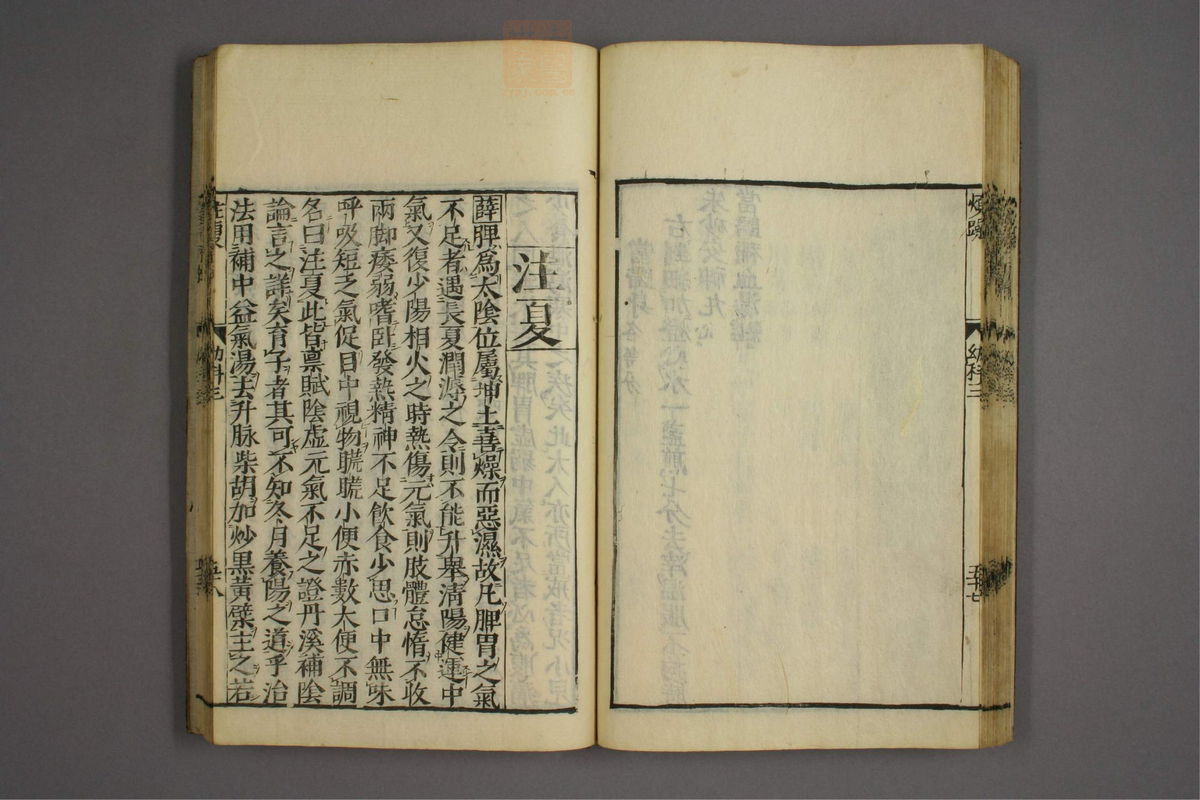 煩躁
幼科三
五十七
注夏
薛脾為太陰位屬坤土喜燥而惡濕故凡脾胃之氣
不足者遇長夏潤溽之令則不能升舉淸陽健運中
氣又復少陽相火之時熱傷元氣則肢體怠惰不收
兩脚痿弱嗜卧發熱精神不足飲食少思口中無味
呼吸短乏氣促目中視物䀮䀮小便赤數大便不調
名曰注夏此皆禀賦陰虛元氣不足之證丹溪補陰
論言之詳矣育子者其可不知冬月養陽之道乎治
法用補中益氣湯去升脉柴胡加炒黑黃蘗主之若
注夏
幼科三
五十八